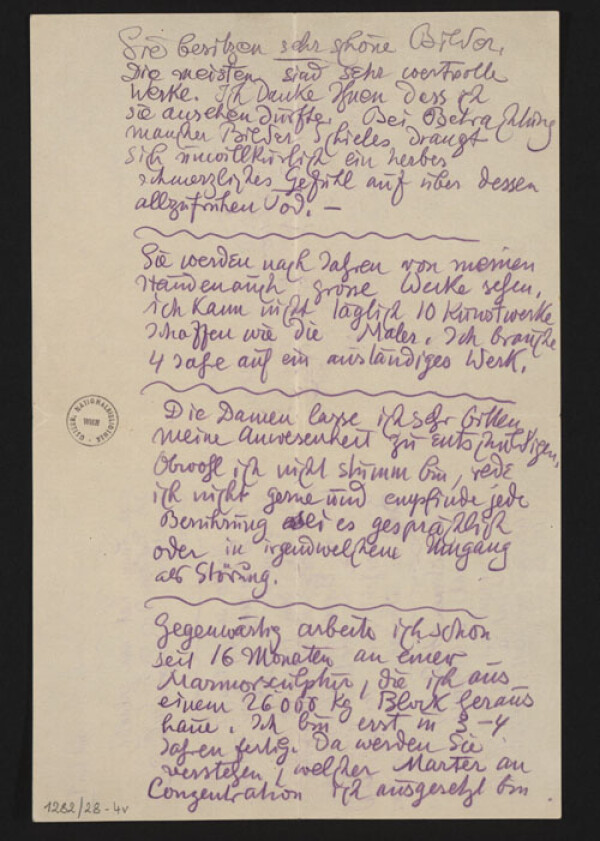 Sie besitzen sehr schöne Bilder.
Die meisten sind sehr wertvolle
Werke. Ich Danke Ihnen dass ich
sie ansehen dürfte. Bei Betrachtung
mancher Bilder Schieles drängt
sich unwillkürlich ein herbes
schmerzliches Gefühl auf über dessen
allzufrühen Tod. —
Sie werden nach Jahren von meinen
Händen auch grosse Werke sehen,
ich kann nicht täglich 10 Kunstwerke
schaffen wie die Maler. Ich brauche
4 Jahre auf ein anständiges Werk.
Die Damen lasse ich sehr bitten
meine Anwesenheit zu entschuldigen,
Obwohl ich nicht stumm bin, rede
ich nicht gerne und empfinde jede
Berührung sei es gesprächlich
oder in irgendwelchem Umgang
als Störung.
Gegenwärtig arbeite ich schon
seit 16 Monaten an einer
Marmorsculptur, die ich aus
einem 26000 Kg Block heraus
haue. Ich bin erst in 3-4
Jahren fertig. Da werden Sie
verstehen, welcher Marter an
Conzentration ich ausgesetzt bin
ÖSTERR. NATIONALBIBLIOTHEK
WIEN
1282/28-4v